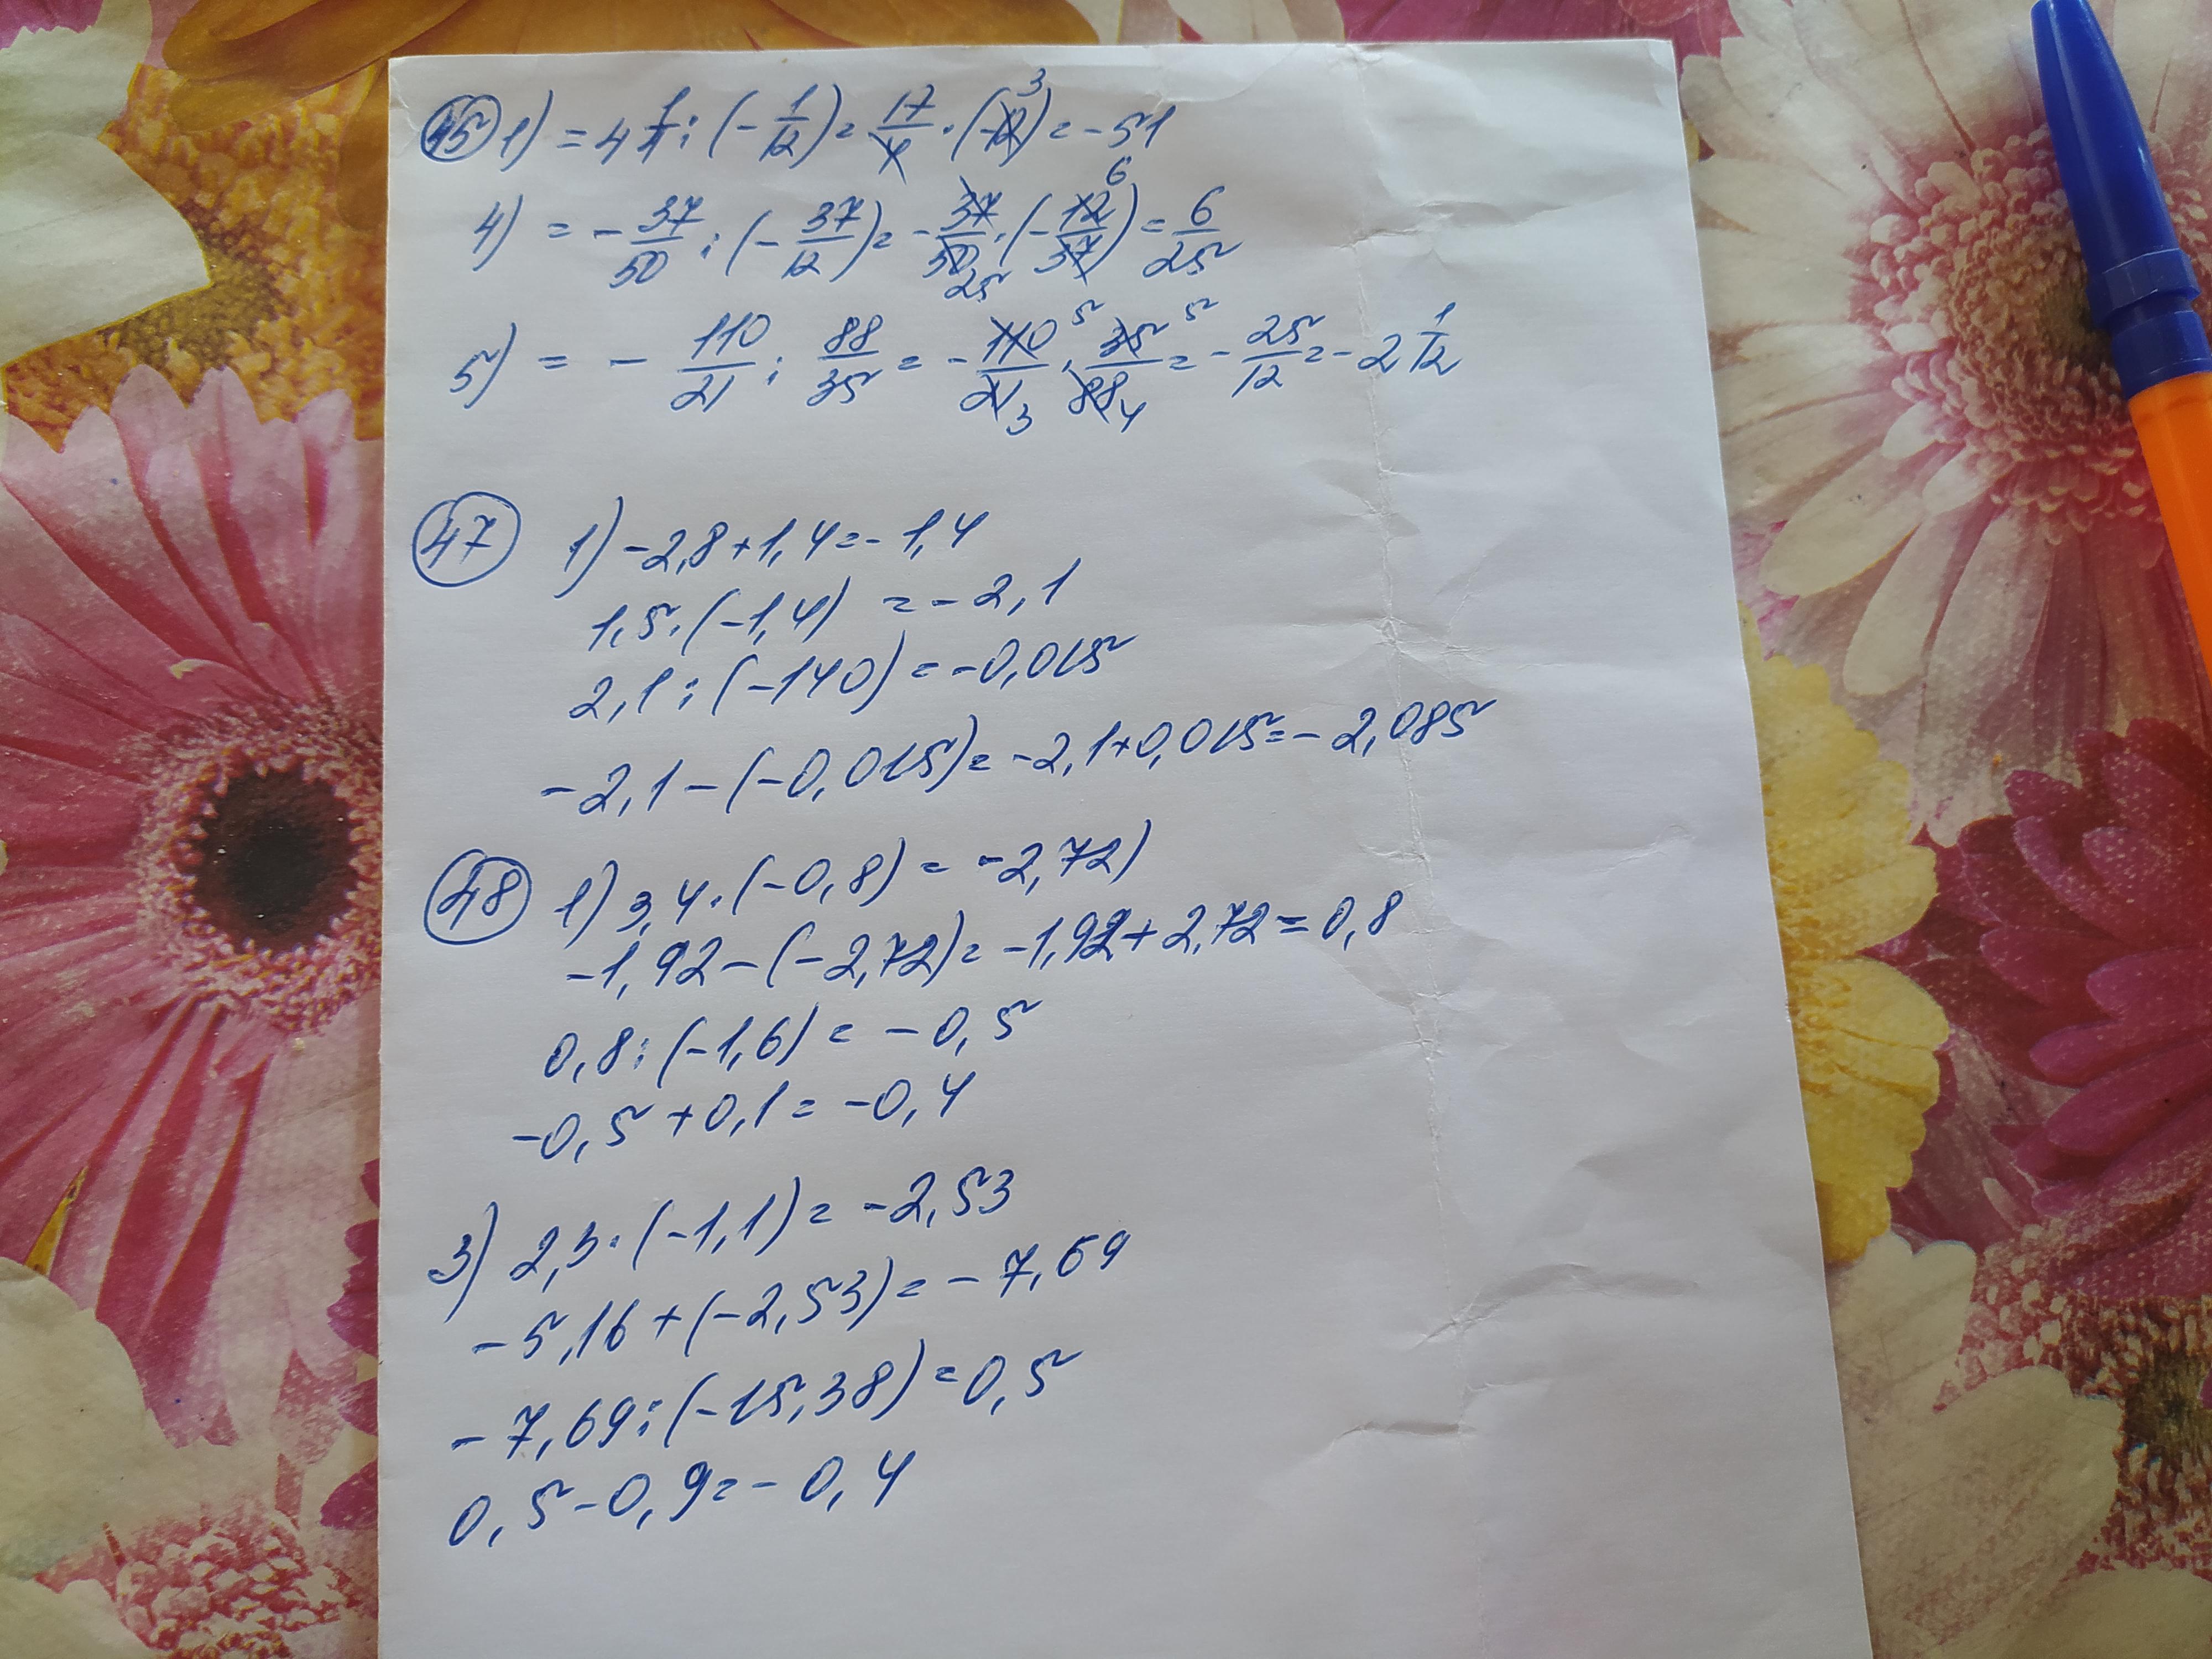 45 1) = 4 1/4 : (- 1/12) = 17/4 · (-12) 3 = -51
4) = - 37/50 : (- 37/12) = - 37/50 25 · (- 12/37) 6 = 6/25
5) = - 110/21 : 88/35 = - 110/21 5 3 · 35/88 5 4 = - 25/12 = - 2 1/12
47 1) -2,8+1,4=-1,4
1,5·(-1,4) =-2,1
2,1:(-140)=-0,015
-2,1-(-0,015)=-2,1+0,015=-2,085
48 1) 3,4·(-0,8)= -2,72)
-1,92-(-2,72)=-1,92+2,72=0,8
0,8:(-1,6)= -0,5
-0,5+0,1=-0,4
3) 2,3·(-1,1)=-2,53
-5,16+(-2,53)=-7,69
-7,69:(-15,38)=0,5
0,5-0,9=-0,4